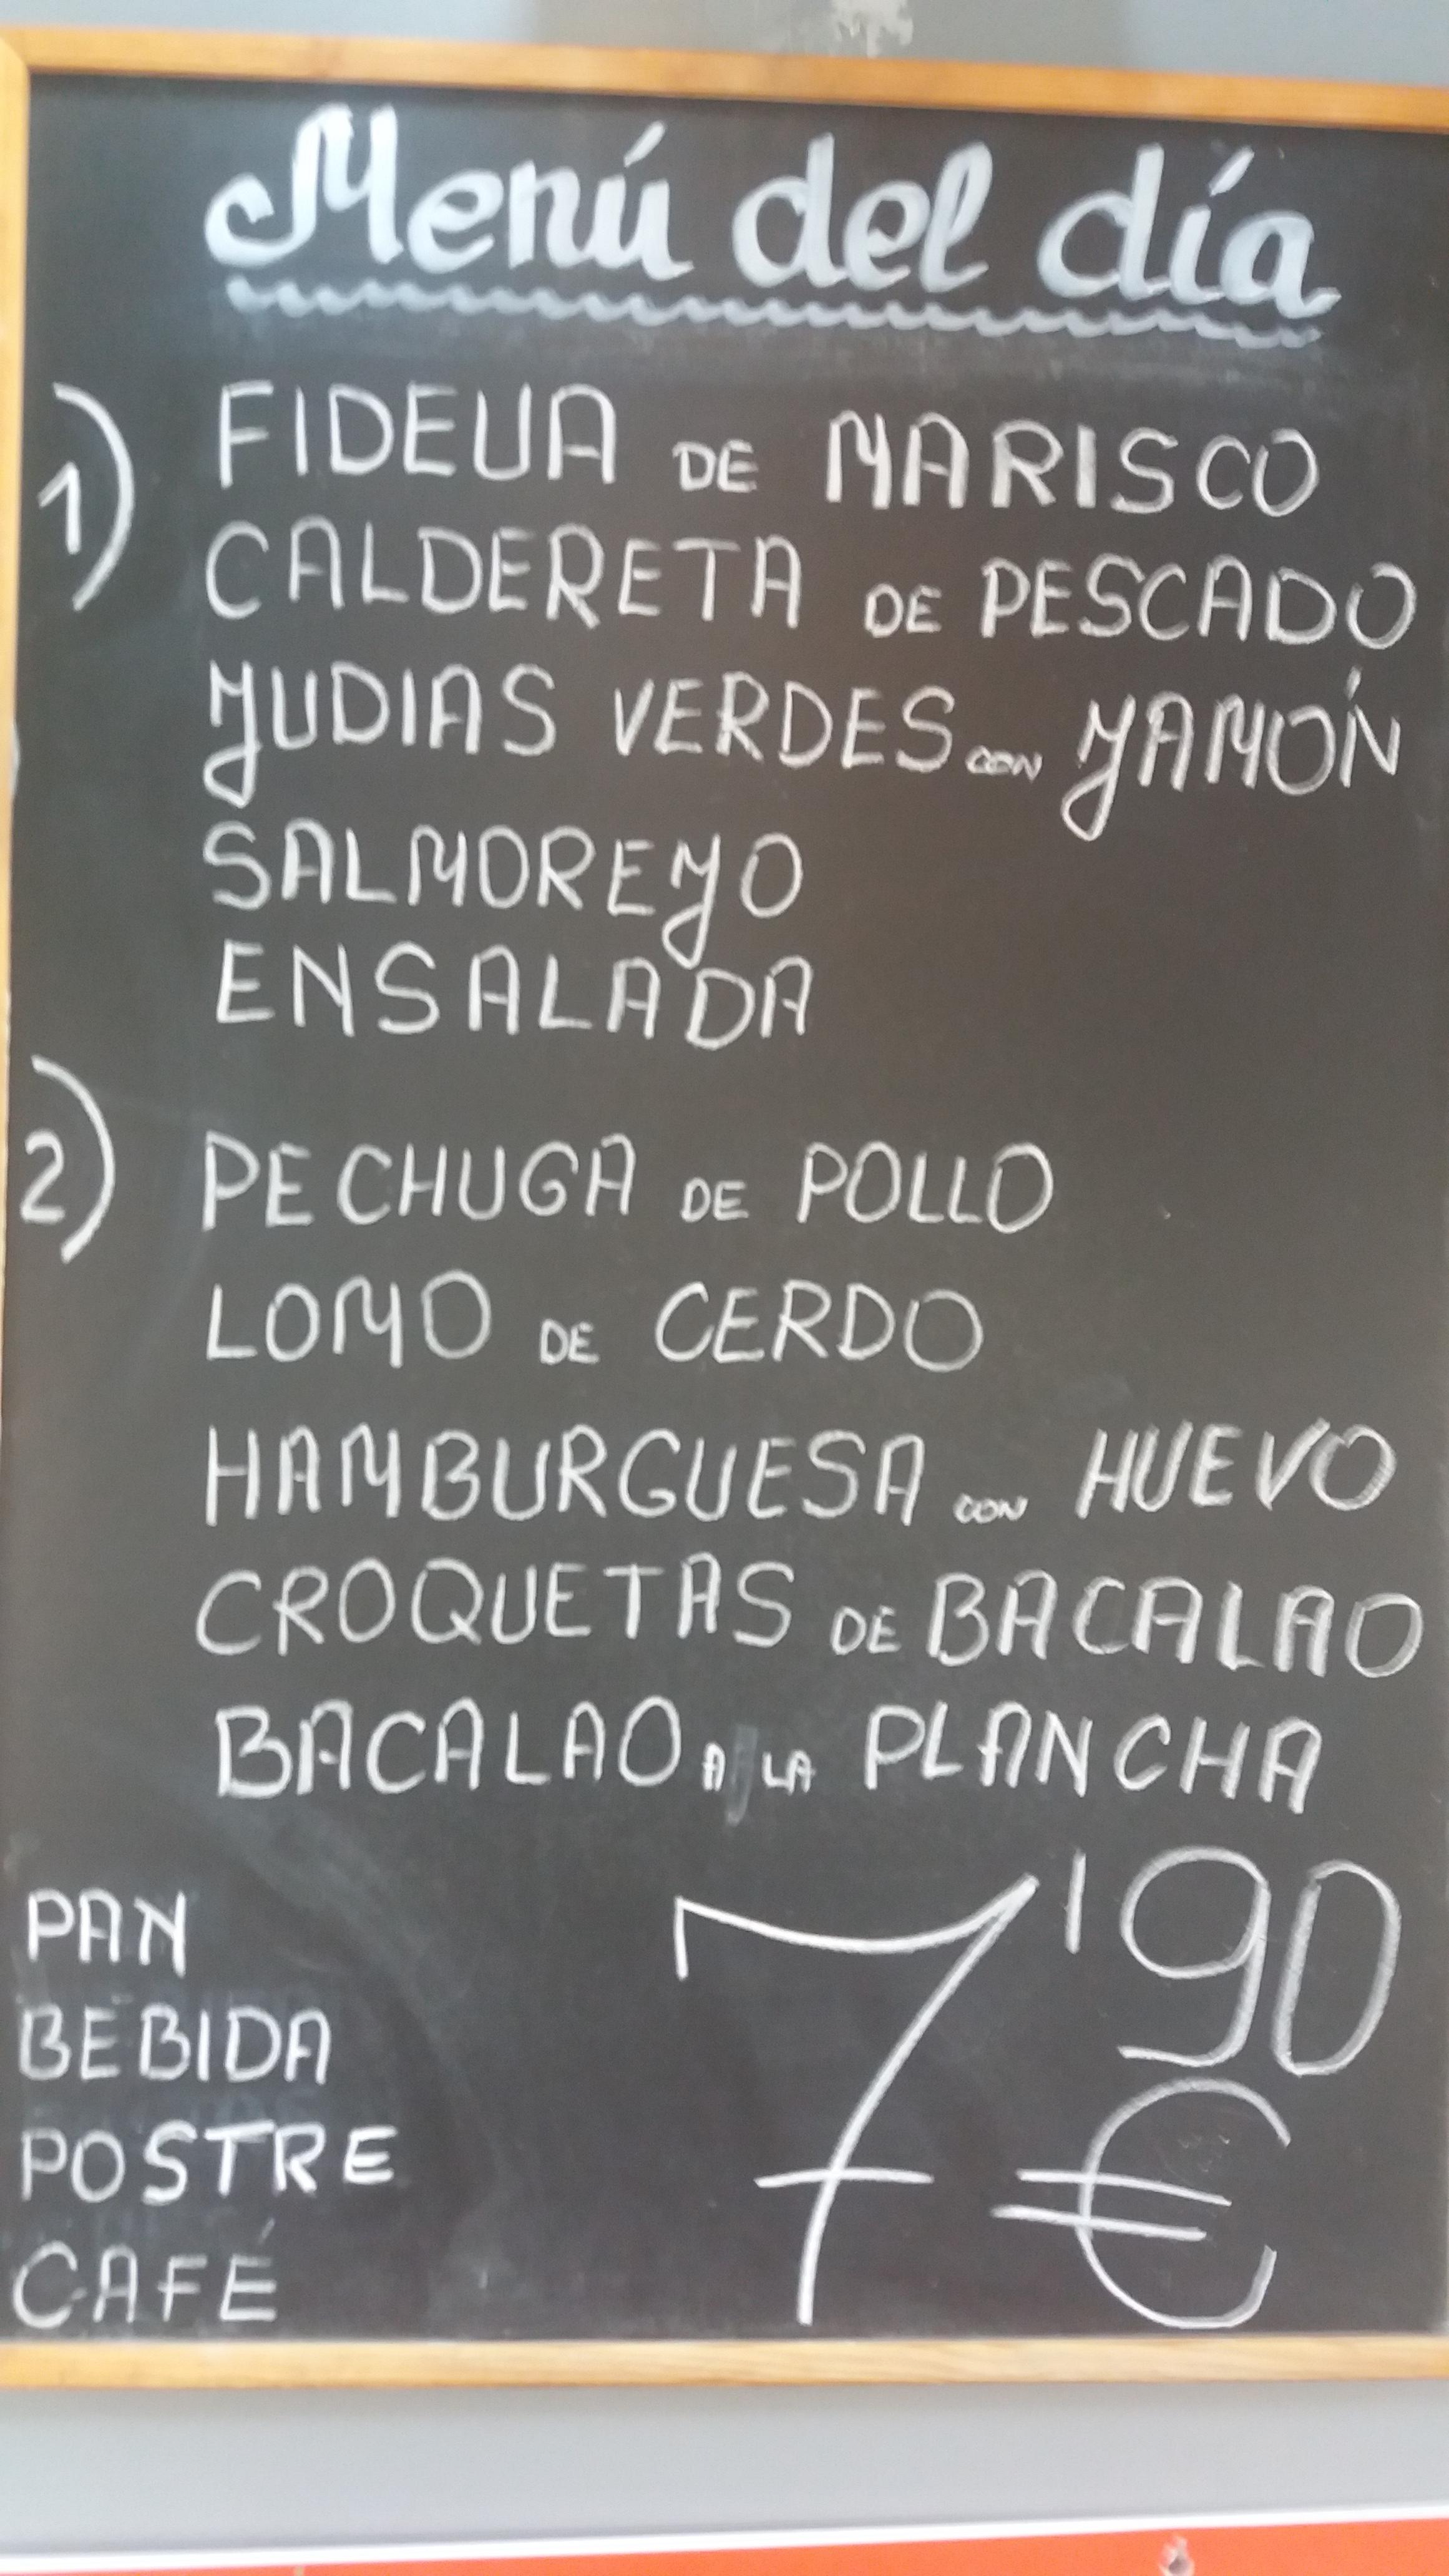 Menú del día
1) FIDEUA DE MARISCO
CALDERETA DE PESCADO
JUDIAS VERDES CON JAMÓN
SALMOREJO
ENSALADA
2) PECHUGA DE POLLO
LOMO DE CERDO
HAMBURGUESA CON HUEVO
CROQUETAS DE BACALAO
BACALAO A LA PLANCHA
PAN
BEBIDA
POSTRE
CAFÉ
7'90 €